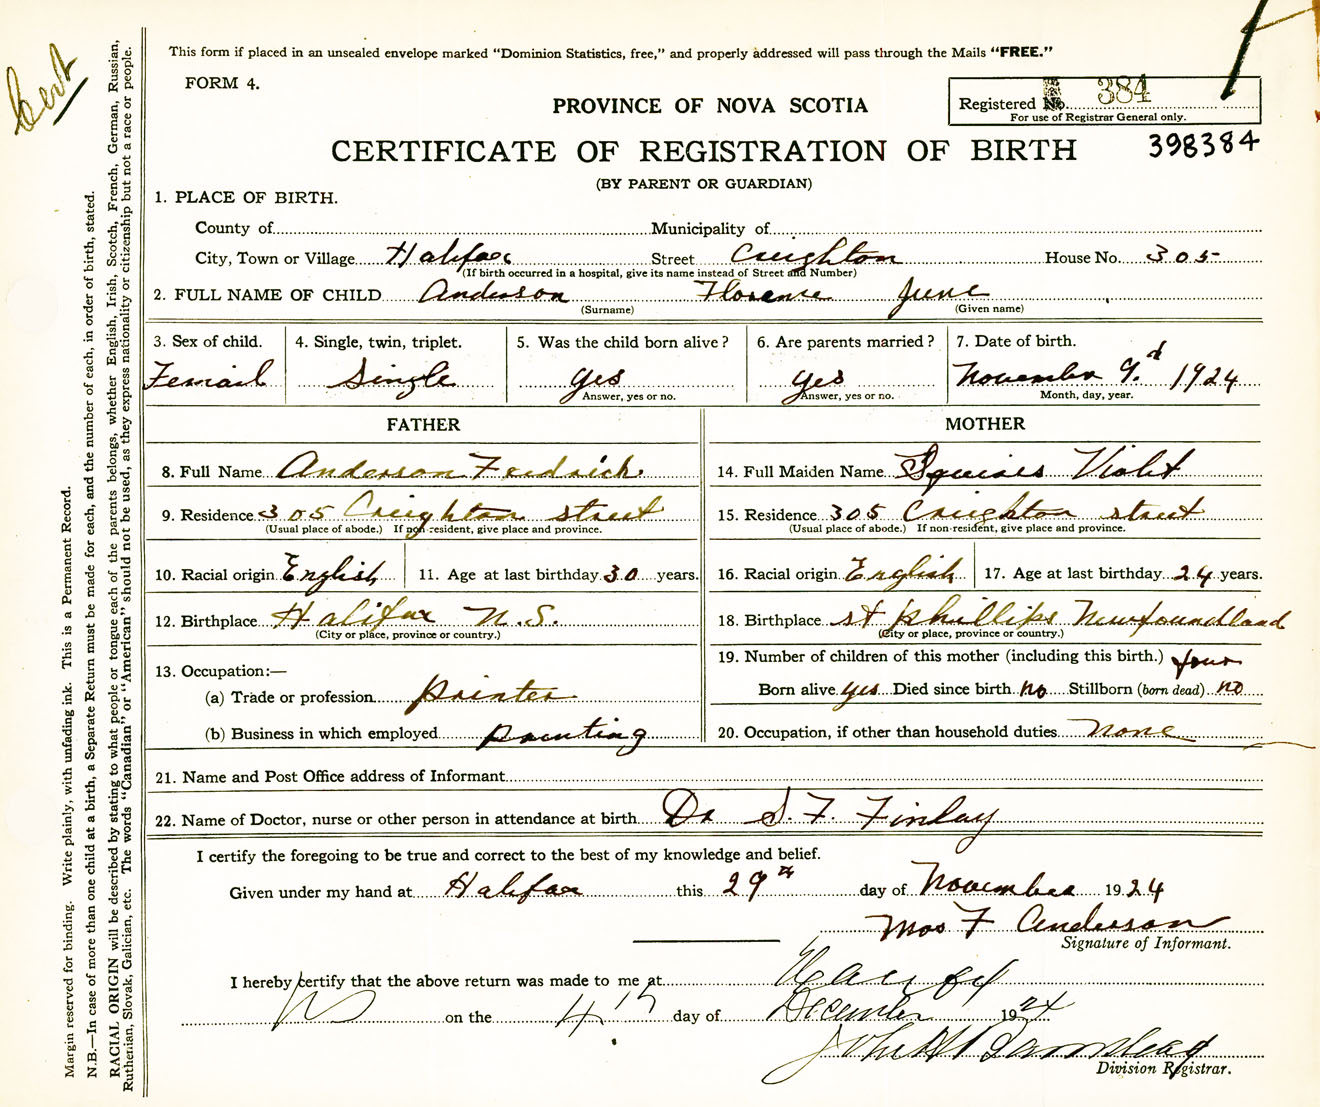 Cert
This form if placed in an unsealed envelope marked "Dominion Statistics, free," and properly addressed will pass through the Mails "FREE."
FORM 4.
Registered No. 384
For use of Registrar General only.
PROVINCE OF NOVA SCOTIA
CERTIFICATE OF REGISTRATION OF BIRTH
398384
(BY PARENT OR GUARDIAN)
1. PLACE OF BIRTH.
County of Municipality of
City, Town or Village Halifax Street Creighton House No. 305
(If birth occurred in a hospital, give its name instead of Street and Number)
2. FULL NAME OF CHILD Anderson Florence June
(Surname) (Given name)
3. Sex of child. 4. Single, twin, triplet. 5. Was the child born alive? 6. Are parents married? 7. Date of birth.
Femail Single yes yes November 9.d 1924
Answer, yes or no. Answer, yes or no. Month, day, year.
FATHER MOTHER
8. Full Name Anderson Fredrick 14. Full Maiden Name Squires Violet
9. Residence 305 Creighton street 15. Residence 305 Creighton street
(Usual place of abode.) If non-resident, give place and province. (Usual place of abode.) If non-resident, give place and province.
10. Racial origin English 11. Age at last birthday 30 years. 16. Racial origin English 17. Age at last birthday 24 years.
12. Birthplace Halifax N.S. 18. Birthplace st phillips Newfoundland
(City or place, province or country.) (City or place, province or country.)
13. Occupation:— 19. Number of children of this mother (including this birth.) four
(a) Trade or profession painter Born alive yes Died since birth no Stillborn (born dead) no
(b) Business in which employed painting 20. Occupation, if other than household duties None
21. Name and Post Office address of Informant
22. Name of Doctor, nurse or other person in attendance at birth Dr S. F. Finlay
I certify the foregoing to be true and correct to the best of my knowledge and belief.
Given under my hand at Halifax this 29th day of November 1924
Mrs F Anderson
Signature of Informant.
I hereby certify that the above return was made to me at Halifax
NS on the 4th day of December 1924
John A
Division Registrar.
Margin reserved for binding. Write plainly, with unfading ink. This is a Permanent Record.
N.B.—In case of more than one child at a birth, a Separate Return must be made for each, and the number of each, in order of birth, stated.
RACIAL ORIGIN will be described by stating to what people or tongue each of the parents belongs, whether English, Irish, Scotch, French, German, Russian,
Ruthenian, Slovak, Galician, etc. The words "Canadian" or "American" should not be used, as they express nationality or citizenship but not a race or people.